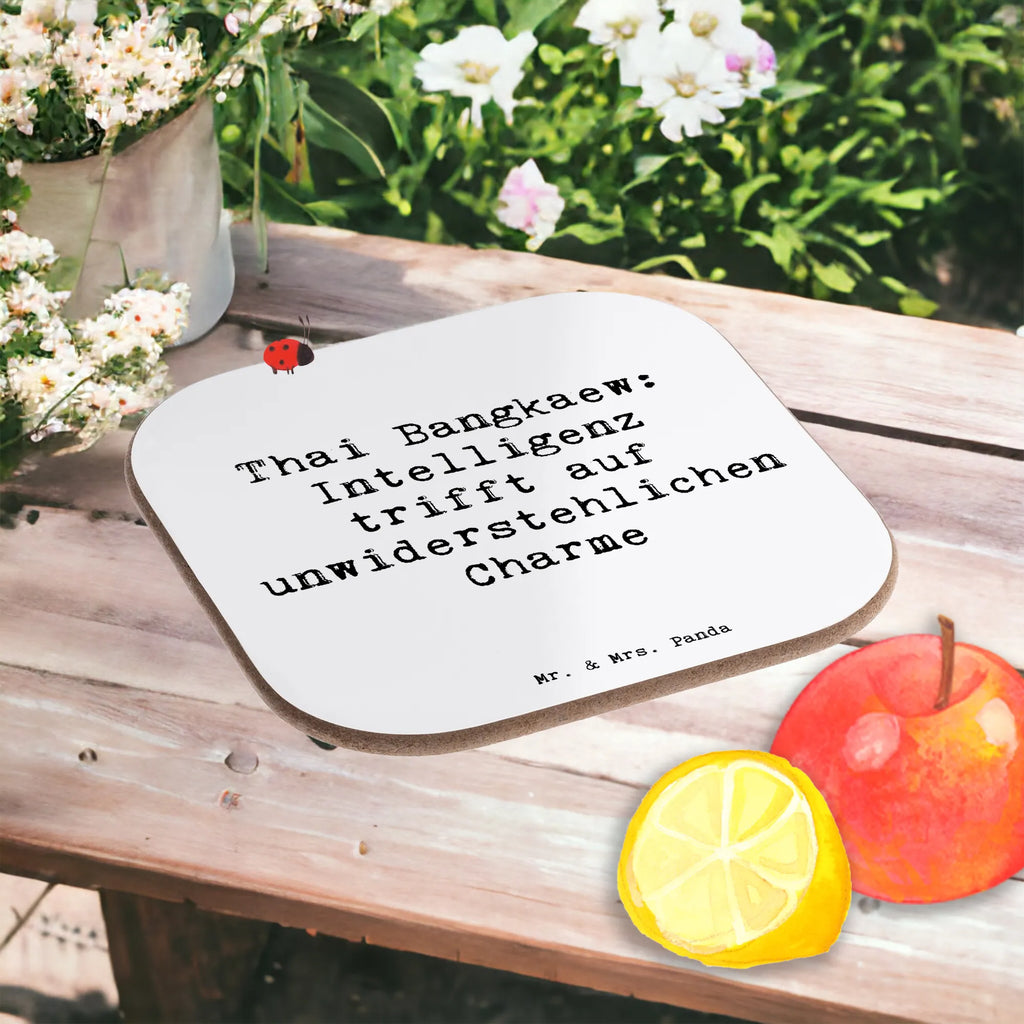 Thai Bangkaew:
Intelligenz
trifft auf
unwiderstehlichen
Charme
Mr. & Mrs. Panda